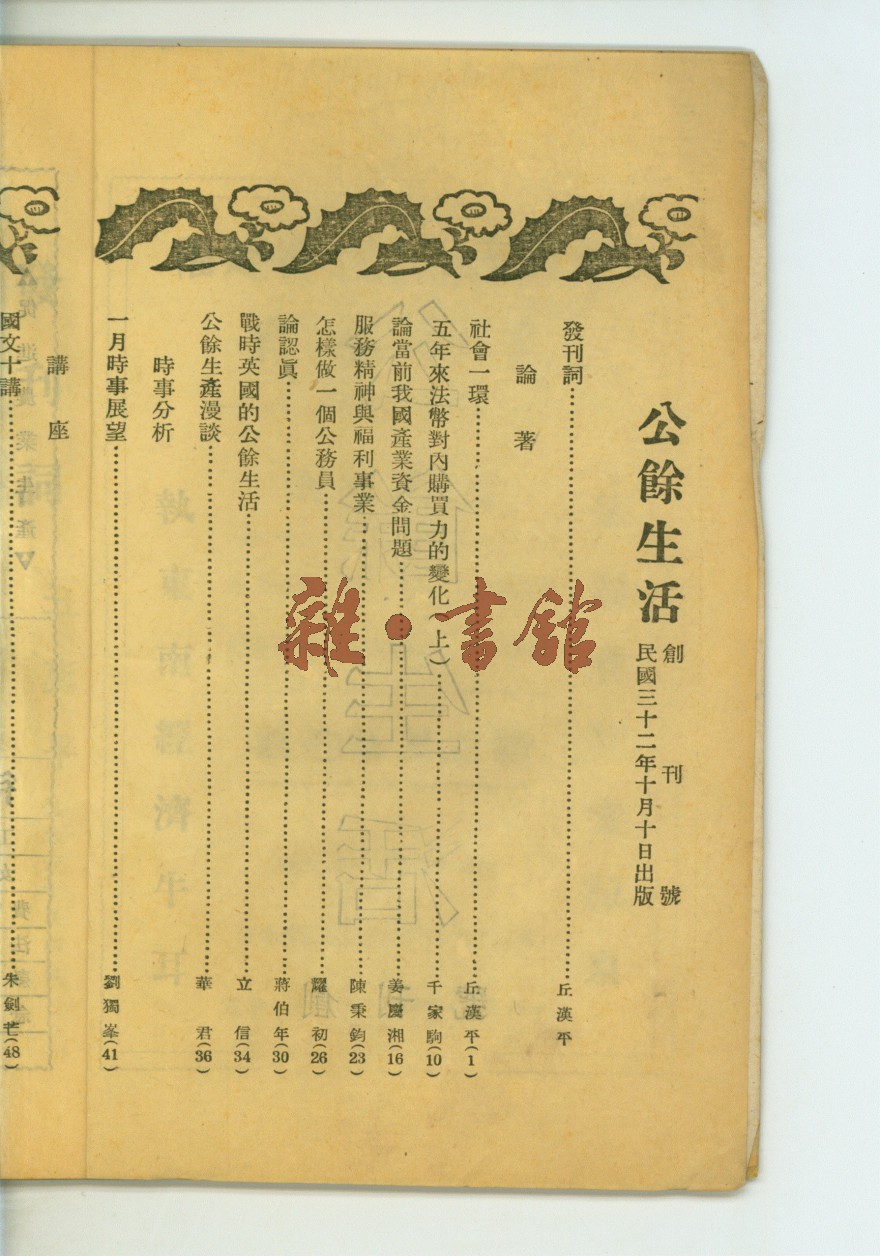 公餘生活
創刊號
民國三十二年十月十日出版
發刊詞……丘漢平
論著
社會一環……丘漢平(1)
五年來法幣對內購買力的變化(上)……千家駒(10)
論當前我國產業資金問題……姜慶湘(16)
服務精神與福利事業……陳秉鈞(23)
怎樣做一個公務員……耀初(26)
論認眞……蔣伯年(30)
戰時英國的公餘生活……立信(34)
公餘生產漫談……華君(36)
時事分析
一月時事展望……劉獨峯(41)
講座
國文十講……朱劍芒(48)
雜·書館